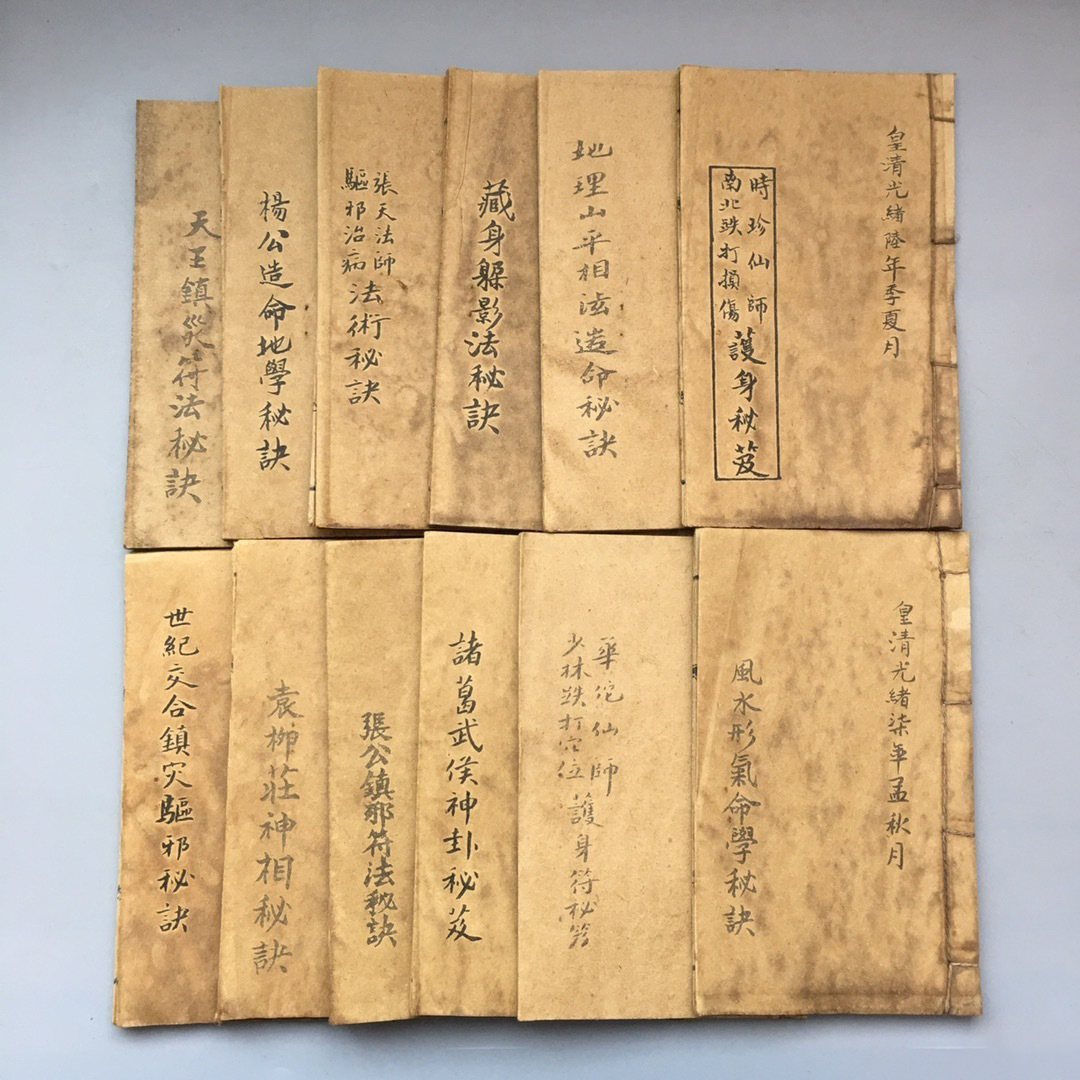 皇清光緒陸年季夏月
時珍仙師
南北跌打損傷
護身秘笈
地理山平相法造命秘訣
藏身躲影法秘訣
張天法師
驅邪治病
法術秘訣
楊公造命地學秘訣
天王鎮災符法秘訣
皇清光緒柒年孟秋月
風水形氣命學秘訣
華佗仙師
少林跌打穴位
護身符秘笈
諸葛武侯神卦秘笈
張公鎮邪符法秘訣
袁柳莊神相秘訣
世紀交合鎮灾驅邪秘訣